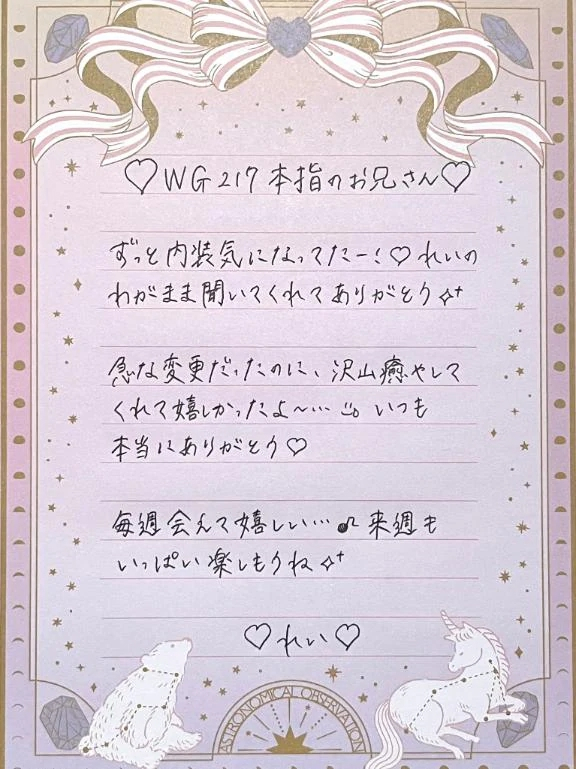 ♡WG217本指のお兄さん♡
ずっと内装気になってたー!♡れいの
わがまま聞いてくれてありがとう✧⁺
急な変更だったのに、沢山癒やして
くれて嬉しかったよ〜… いつも
本当にありがとう♡
毎週会えて嬉しい…♫来週も
いっぱい楽しもうね✧⁺
♡れい♡
ASTRONOMICAL OBSERVATION